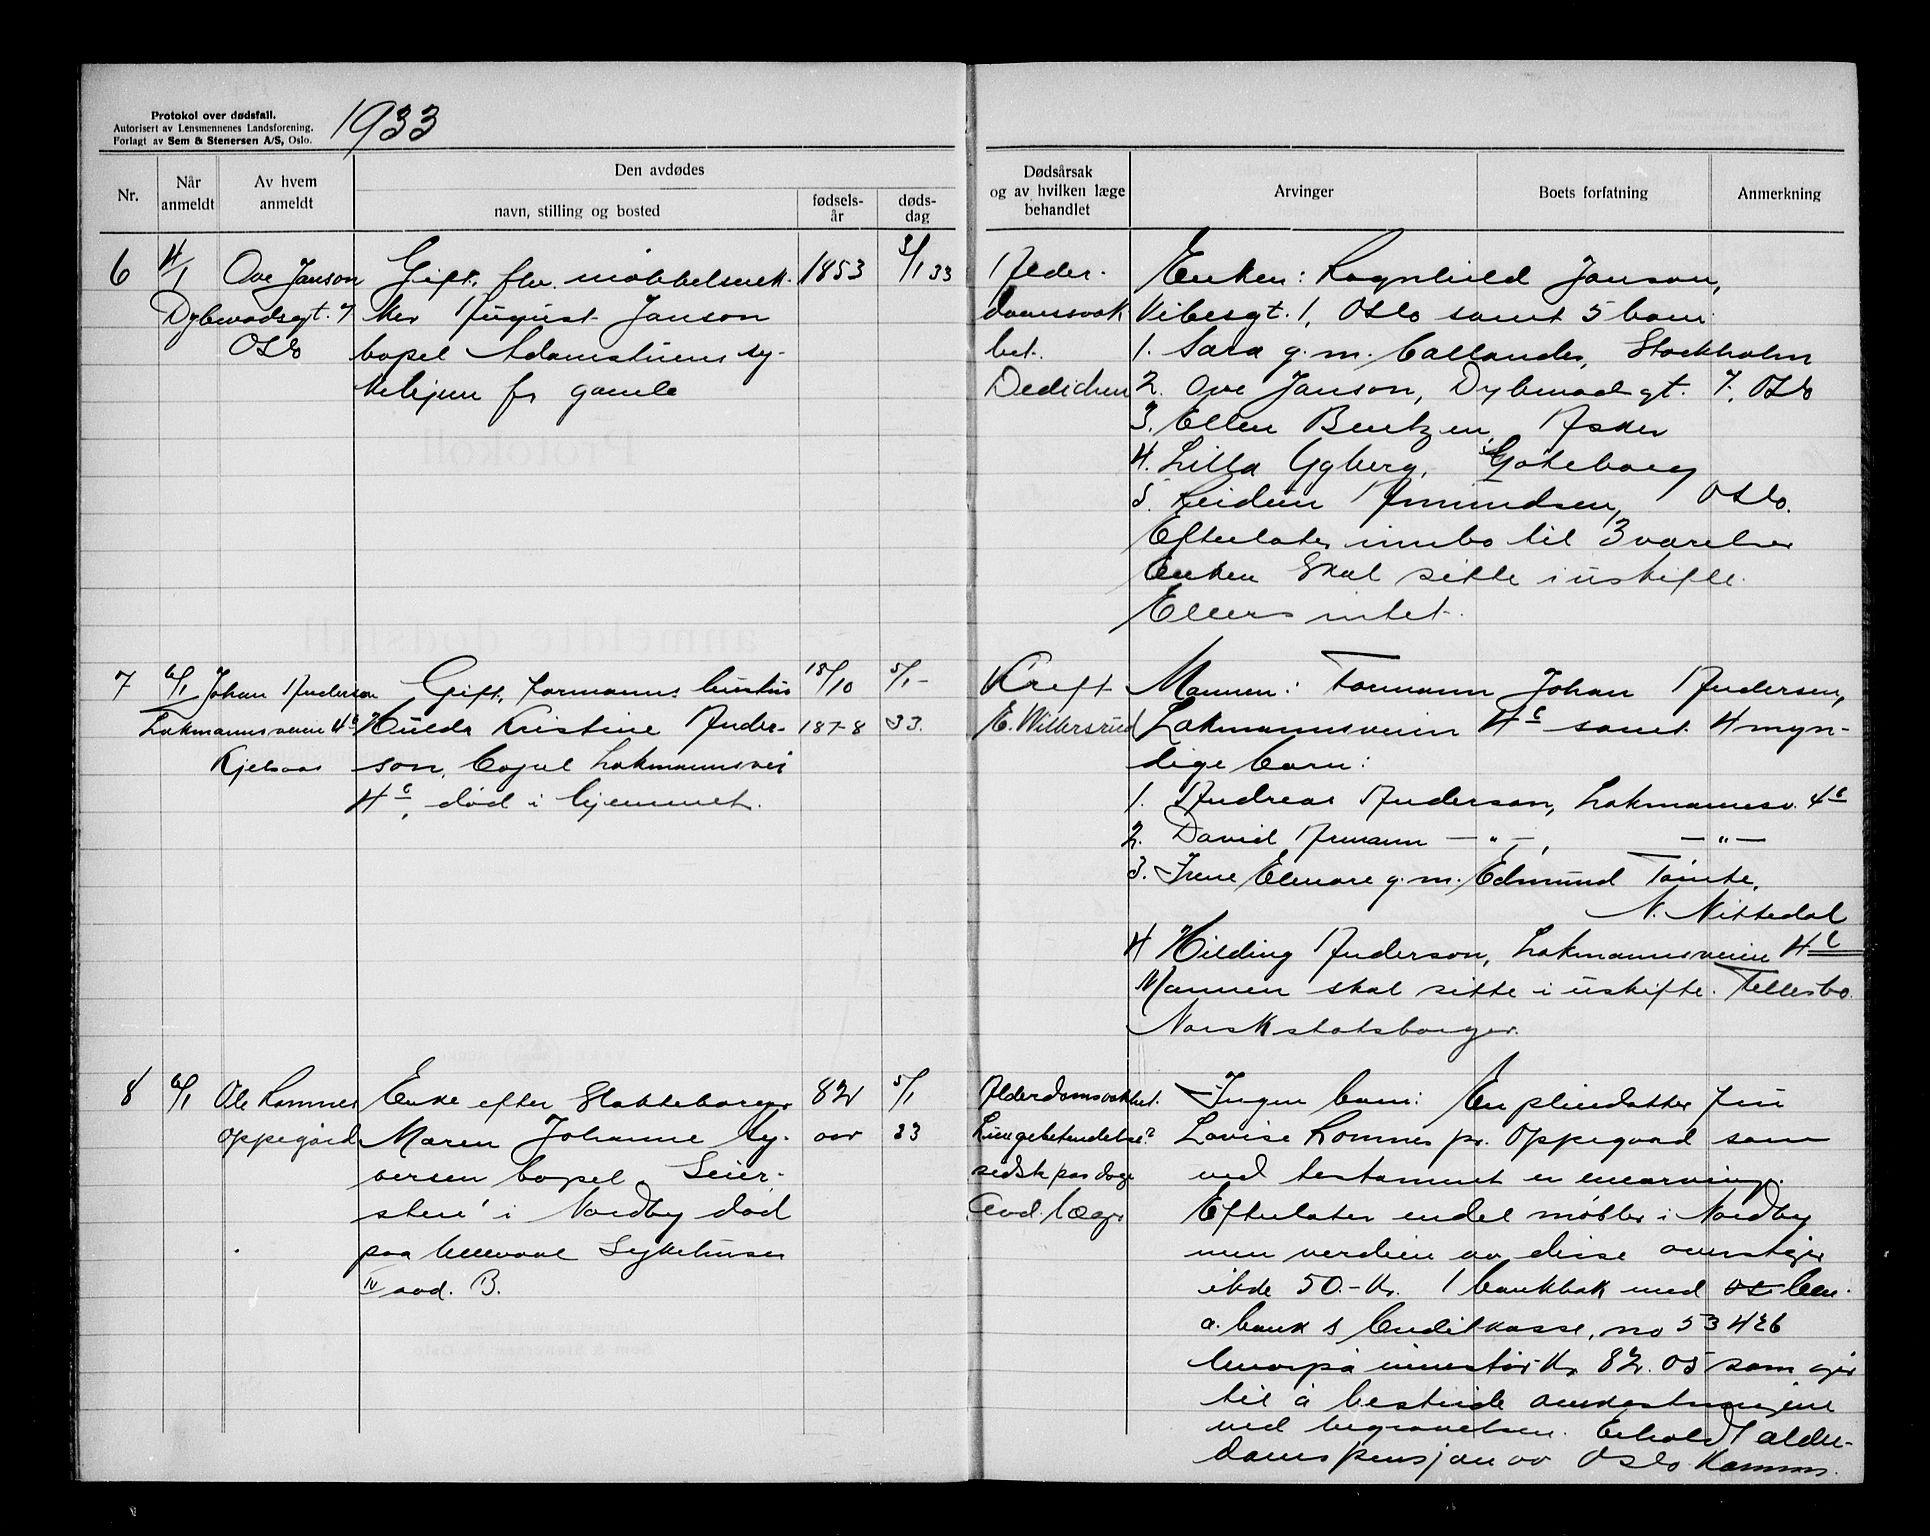 Protokol over dødsfall.
Autorisert av Lensmennenes Landsforening.
Forlagt av Sem & Stenersen A/S, Oslo.
1933
Nr.
Når anmeldt
Av hvem anmeldt
Den avdødes
navn, stilling og bosted
fødselsår
dødsdag
Dødsårsak og av hvilken læge behandlet
Arvinger
Boets forfatning
Anmerkning
6 4/1 Ove Janson Gift, fhv. møbbelsnek- 1853 3/1 33
Dybwadsgt. 7 ker August Janson
Oslo bopel Adamstuens sy-
kehjem for gamle
Alder-
domssvak
het.
Dedichen
Enken: Ragnhild Janson,
Vibesgt. 1, Oslo samt 5 barn
1. Sara g.m. Callander, Stockholm
2. Ove Janson, Dybwadsgt. 7, Oslo
3. Ellen Bentzen, Asker
4. Lilla Ygberg, Göteborg
5. Reidun Amundsen, Oslo.
Efterlater innbo til 3 værelser
Enken skal sitte i uskifte.
Ellers intet.
7 6/1 Johan Anderson Gift, formanns hustru 18/10 5/1 -
Lakmannsveien 4c Hulda Kristine Ander- 1878 33.
Kjelsaas son, bopel Lakmannsvei
4c, død i hjemmet.
Kreft
E. Willersrud
Mannen: Formann Johan Andersen,
Lakmannsveien 4c samt 4 myn-
dige barn:
1. Andreas Anderson, Lakmannsv. 4c
2. David Armann — " —, — " —
3. Irene Elenore g.m. Edmund Tømte,
N. Nittedal
4 Hilding Anderson, Lakmannsveien 4c
Mannen skal sitte i uskifte. Fellesbo.
Norsk statsborger.
8 6/1 Ole Romnes Enke efter Maren Johanne Sy- 82 5/1
oppegård aar 33
versen bopel Seier-
sten i Nordby død
paa Ullevaal Sykehuser
IV avd. B.
Alderdomsvakhet.
Lungebetendelse?
sidste par dage
Avd. læge
Ingen barn: En pleiedatter
Lovise Romnes pr. Oppegaard som
ved testament er enearving.
Efterlater endel møbler i Nordby
men verdien av disse overstiger
ikke 50.- kr. 1 bankbok med
a. bank & Creditkasse, no 53426
hvorpå innestår kr. 82.05 som går
til å bestride omkostningene
ved begravelsen. Erholdt alder-
domspensjon av Oslo Kommm.